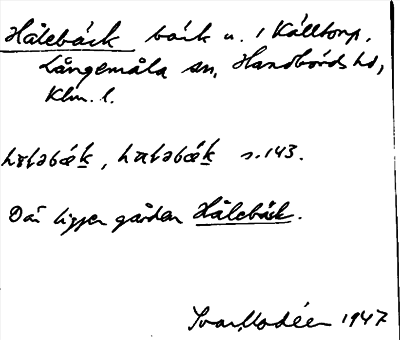 Hålebäck bäck u. / Källtorp,
Långemåla sn, Handbörds hd,
Klm. l.
s. 143.
Där ligger gården Hålebäck.
Ivar Modéer 1947